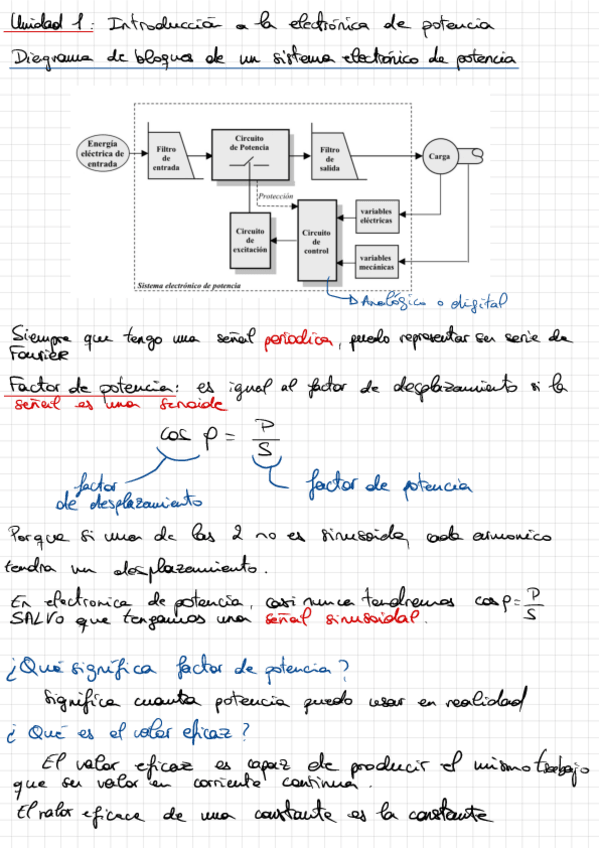 Unidad 1: Introducción a la electrónica de potencia
Diagrama de bloques de un sistema electrónico de potencia
Energía
eléctrica de
entrada
Filtro
de
entrada
Circuito
de Potencia
Filtro
de
salida
Carga
Protección
Circuito
de
excitación
Circuito
de
control
variables
eléctricas
variables
mecánicas
Sistema electrónico de potencia
Analógico o digital
Siempre que tengo una señal periodica, puedo representar su serie de
Fourier
Factor de potencia: es igual al factor de desplazamiento si la
señal es una senoide
cos ρ = P/S
factor
de desplazamiento
factor de potencia
Porque si una de las 2 no es sinusoide, cada armonico
tendra un desplazamiento.
En electronica de potencia, casi nunca tendremos cos ρ = P/S
SALVO que tengamos una señal sinusoidal.
¿Qué significa factor de potencia?
Significa cuanta potencia puedo usar en realidad
¿Qué es el valor eficaz?
El valor eficaz es capaz de producir el mismo trabajo
que su valor en corriente continua.
El valor eficace de una constante es la constante